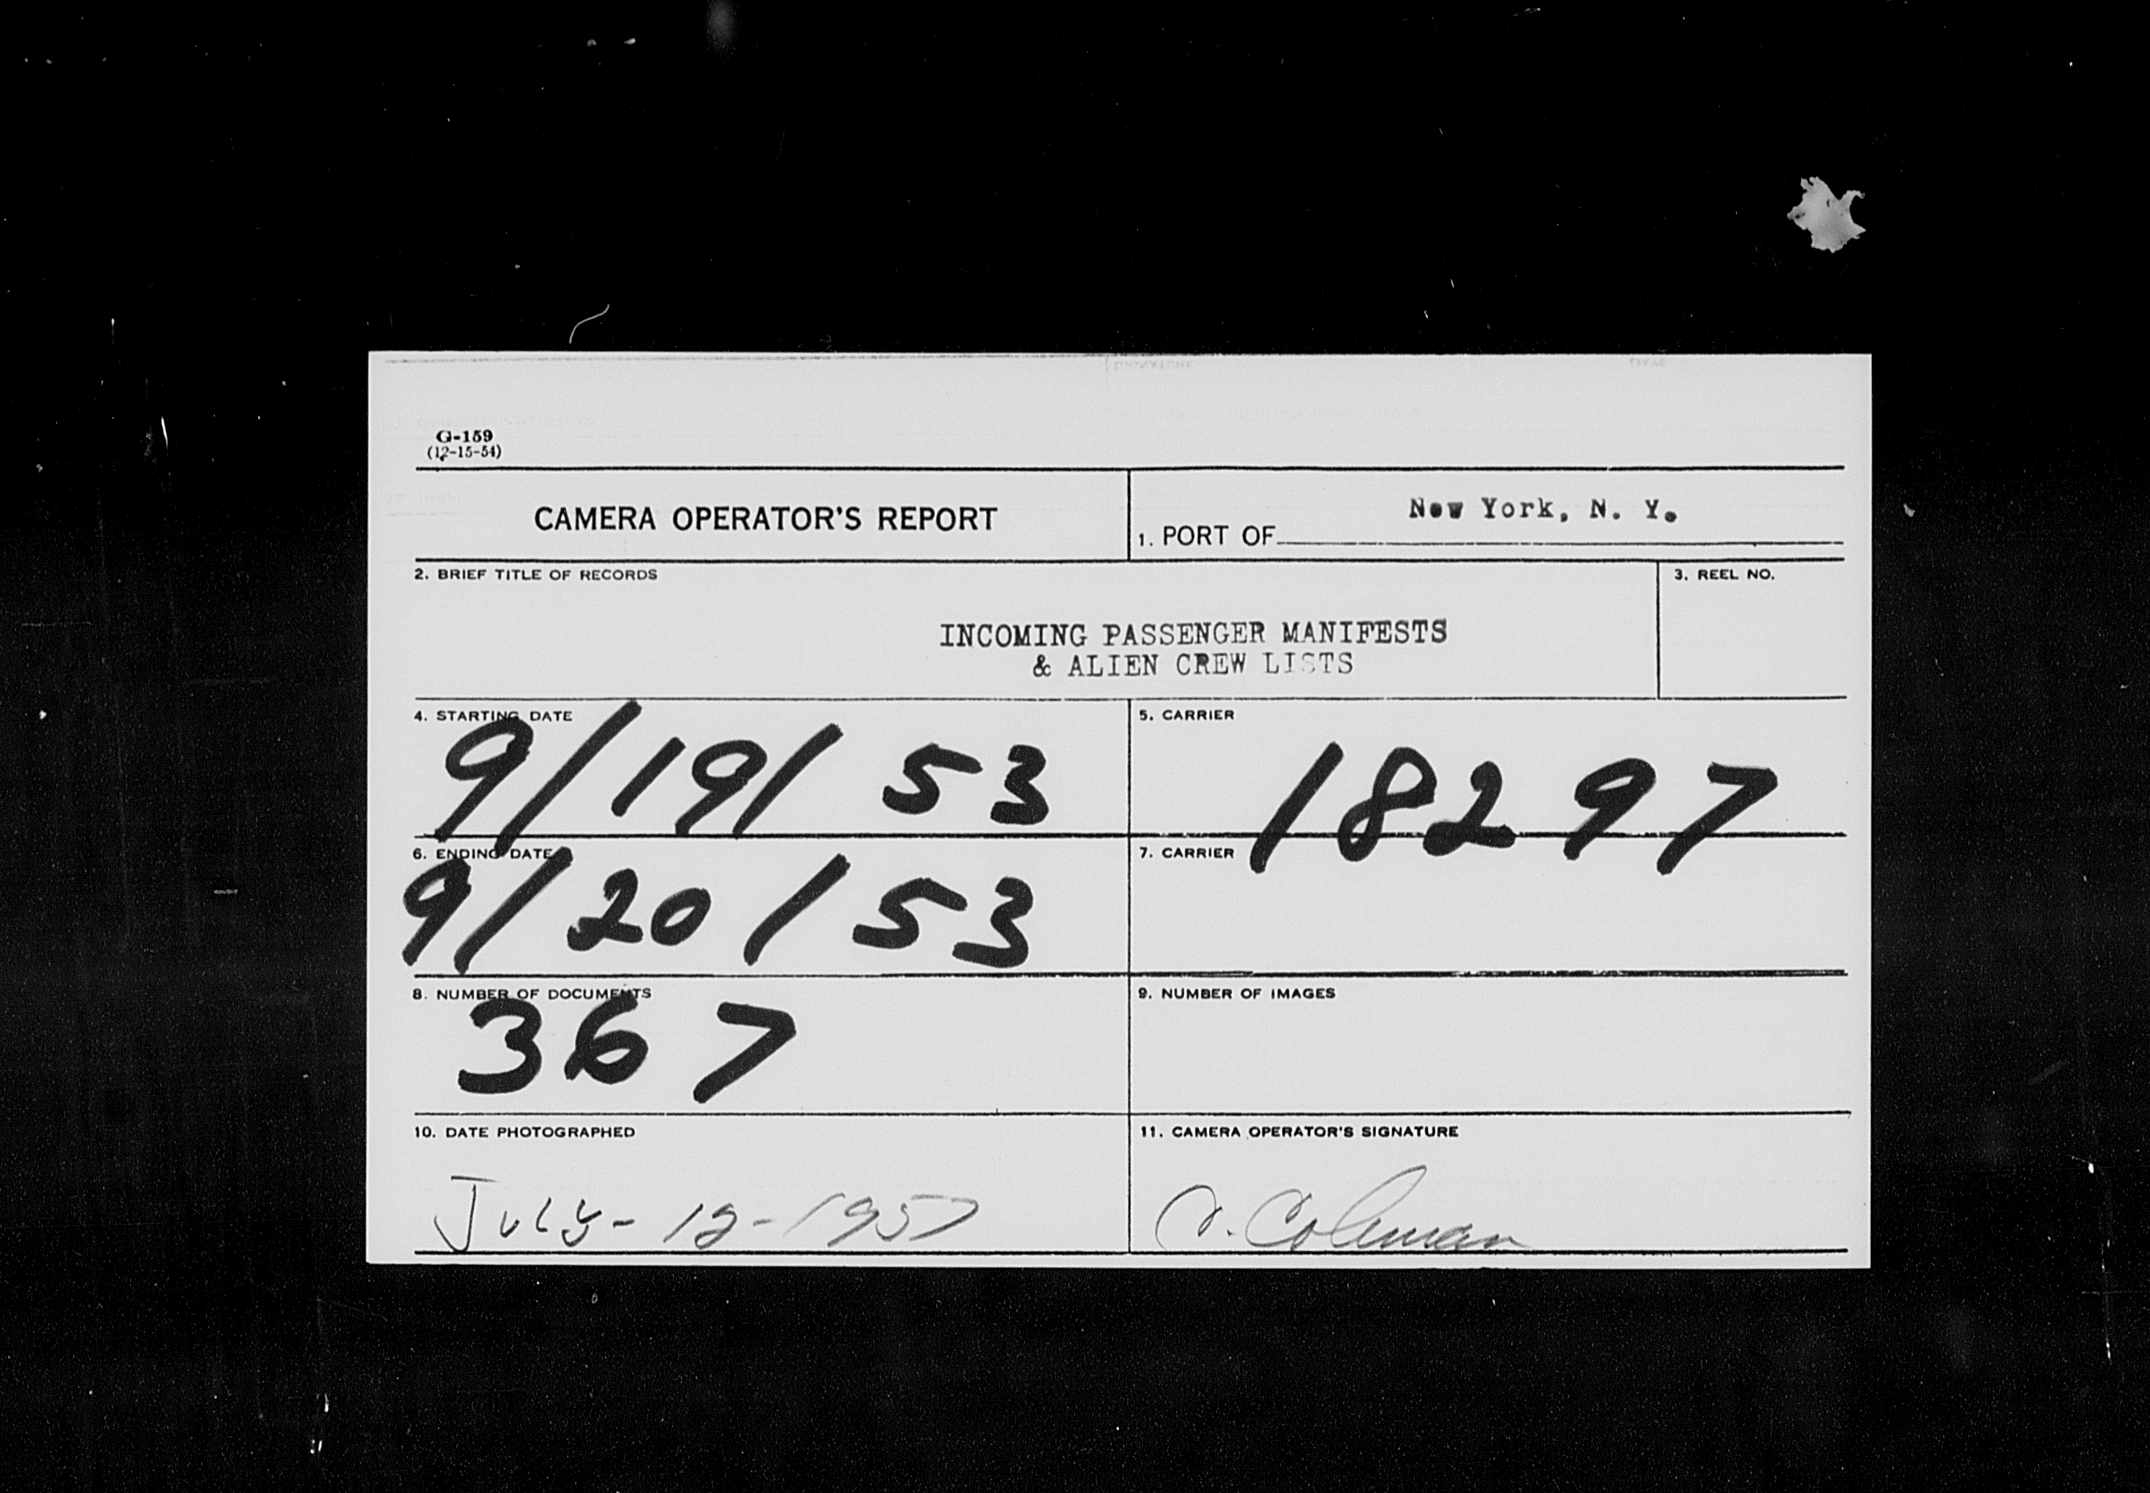 G-159
(12-15-54)
CAMERA OPERATOR'S REPORT
1. PORT OF New York, N. Y.
2. BRIEF TITLE OF RECORDS
3. REEL NO.
INCOMING PASSENGER MANIFESTS
& ALIEN CREW LISTS
4. STARTING DATE
9/19/53
5. CARRIER
18297
6. ENDING DATE
9/20/53
7. CARRIER
8. NUMBER OF DOCUMENTS
367
9. NUMBER OF IMAGES
10. DATE PHOTOGRAPHED
July- -1957
11. CAMERA OPERATOR'S SIGNATURE
Coleman